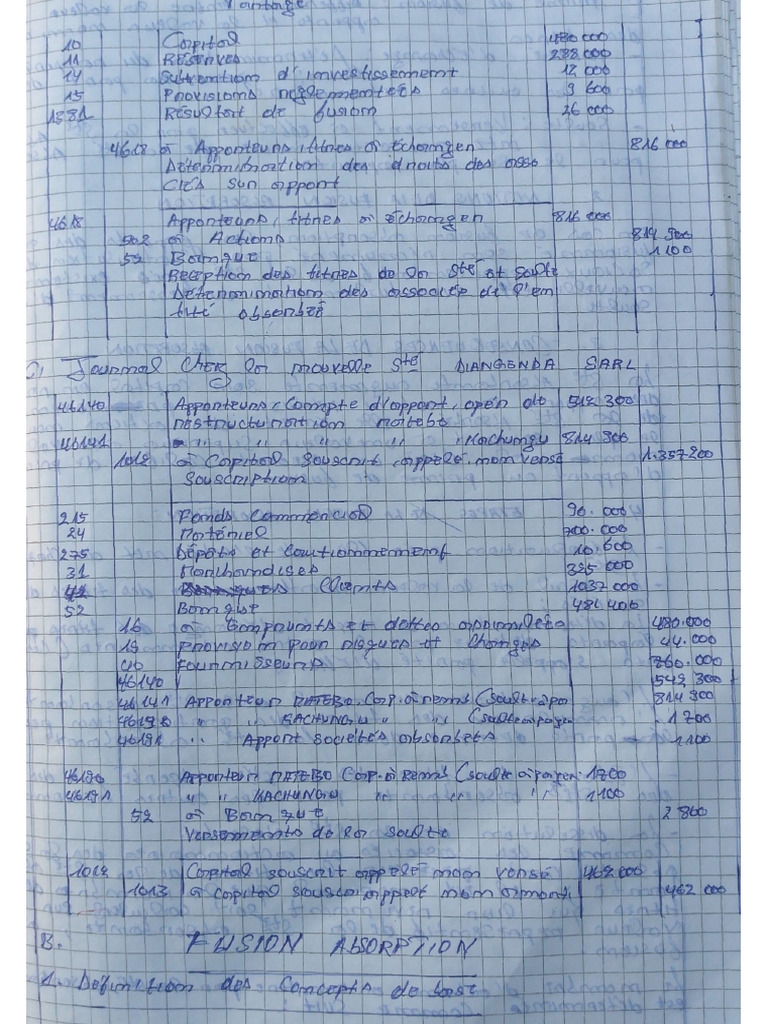 Partage
10 Capital 480 000
11 Réserves 288 000
14 Subvention d'investissement 12 000
15 Provisions réglementées 9 600
1381 Résultat de fusion 26 000
4618 à Apporteurs, titres à échanger 816 000
Détermination des droits des asso
ciés sur apport
4618 Apporteurs, titres à échanger 816 000
502 à Actions 814 900
52 Banque 1 100
Réception des titres de la Sté et soulte
Détermination des associés de l'en
tité absorbée
Journal chez la nouvelle Sté DIANGENDA SARL
46140 Apporteurs, Compte d'apport, opér de 542 300
restructuration Matebo
46141 " " " " Kachungu 814 900
1012 à Capital souscrit, appelé, non versé 1.357200
Souscription
215 Fonds Commercial 90.000
24 Matériel 700.000
275 Dépôts et Cautionnement 10.600
31 Marchandises 395 000
41 Clients 1037 000
52 Banque
16 à Emprunts et dettes assimilées 480.000
19 Provision pour risques et charges 44.000
40 Fournisseurs 760.000
46140 542 300
46141 Apporteur MATEBO Cap. à remb (soulte à pa 814 900
" KACHUNGU " (soulte à payer 1 700
" Apport sociétés absorbées 1100
Apporteur MATEBO Cap. à Remb (soulte à payer 1700
" " KACHUNGU " " " " 1100
52 à Banque 2 800
Versements de la soulte
1012 Capital souscrit appelé non versé 462.000
1013 à capital souscri appelé non amorti 462 000
B. FUSION ABSORPTION
1. Définition des Concepts de base